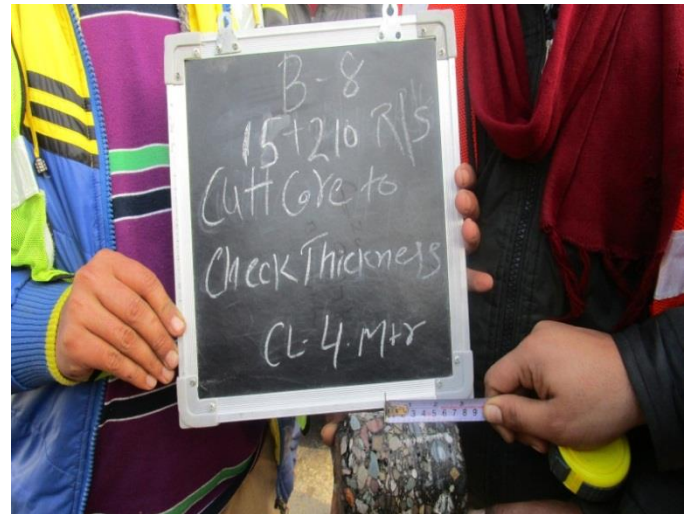 B-8
15+210 R/s
Cutt Core to
Check Thickness
CL- 4. Mtr
3 4 5 6 7 8 9